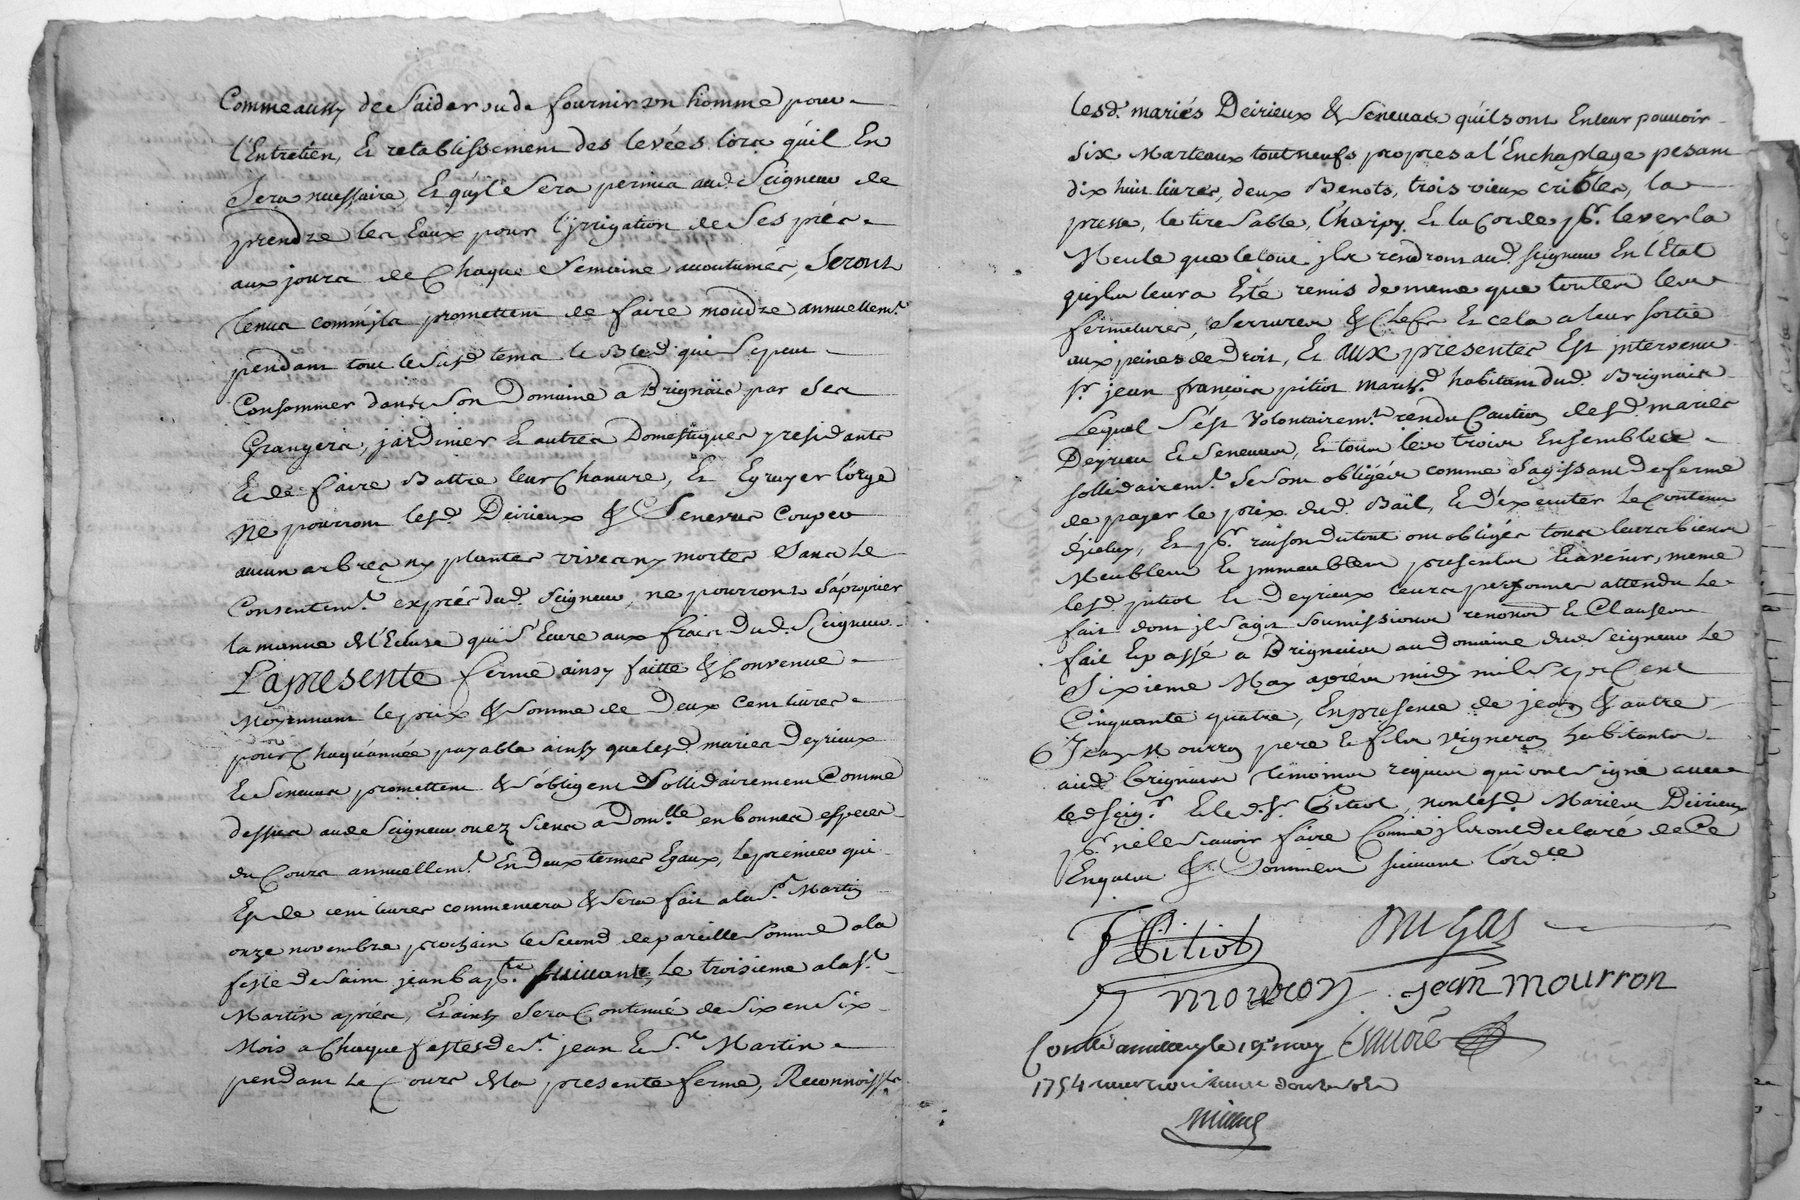 Comme aussy de saider ou de fournir un homme pour
l'Entretien, Et retablissement des levées lors quil En
Sera necessaire, Et quil Sera permis aud. Seigneur de
prendre les Eaux pour l'jrrigation de Ses prés
aux jours de Chaque Semaine accoutumés, Seront
tenus comm'jls promettent de faire moudre annuellemt.
pendant tout le Susd. tems le Bled qui Se peut
Consommer dans Son Domaine a Brignais par Ses
Grangers, jardinier Et autres Domestiques y residants
Et de faire Battre leur Chanvre, Et Egruyer l'orge
Ne pourront lesd. Deirieux & Senevas Couper
aucun arbres ny plantes vives ny mortes Sans Le
Consentemt. exprés dud. Seigneur, ne pourront S'aproprier
la manne de l'Ecluse qui S'Ecure aux frais Dud. Seigneur
La presente ferme ainsy faitte & Convenue
Moyennant le prix & Somme de Deux Cent livres
pour Chaqu'année payable ainsy que lesd. mariés Deyrieux
Et Senevas promettent & S'obligent Sollidairement Comme
dessus aud. Seigneur ou ez Siens a Domlle. en bonnes especes
du Cours annuellemt. En Deux termes Egaux, le premier qui
Est de cent livres commencera & Sera fait a la St. Martin
onze novembre prochain le Second de pareille Somme a la
feste de Saint jean bapte. Suivante, Le troisieme a la St.
Martin aprés, Et ainsy Sera Continué de Six en Six
Mois a Chaque festes de St. jean & St. Martin
pendant Le Cours de la presente ferme, Reconnoisst.
lesd. mariés Deirieux & Senevas qu'ils ont En leur pouvoir
Six Marteaux tout neufs propres a l'Enchaplage pesant
dix huit livres, deux Benots, trois vieux cribles, la
presse, le tire Sable, l'harpy. Et la Corde pr. lever la
Meule que le tout jls rendront aud. Seigneur En l'Etat
qu'jls leur a Eté remis de meme que toutes leur
fermetures, Serrures & Clefs Et cela a leur Sortie
aux peines de Droit, Et aux presentes Est jntervenu
Sr. jean françois pitiot march. habitant dud. Brignais
Lequel S'est Volontairemt. rendu Caution desd. mariés
Deyrieu Et Senevas, Et tous les trois Ensemble
sollidairemt. Se Sont obligées comme S'agissant de ferme
de payer le prix dud. Bail, Et d'éxecuter Le Contenu
d'jceluy, Et pr. raison du tout ont obligés tous leurs biens
Meubles Et jmmeubles presents Et avenir, meme
lesd. pitiot Et Deyrieux leurs personnes attendu Le
fait dont jl S'agit Soumissions renond. Et Clauses
fait Et passé a Brignais au domaine dud. Seigneur Le
Sixieme May aprés midy mil Sept Cent
Cinquante quatre, En presence de jean & autre
Jean Mourron pere Et fils Vigneron habitants
aud. Brignais temoins requis qui ont Signé avec
led. Seigr. Et led. Sr. Pitiot, non lesd. Mariés Deirieux
pr. ne le Scavoir faire Comme jls ont declaré de Ce
Enquis & Sommés Suivant l'ordce.
F Pitiot Dugas
J mourron . jean mourron
le 19e. may
1754